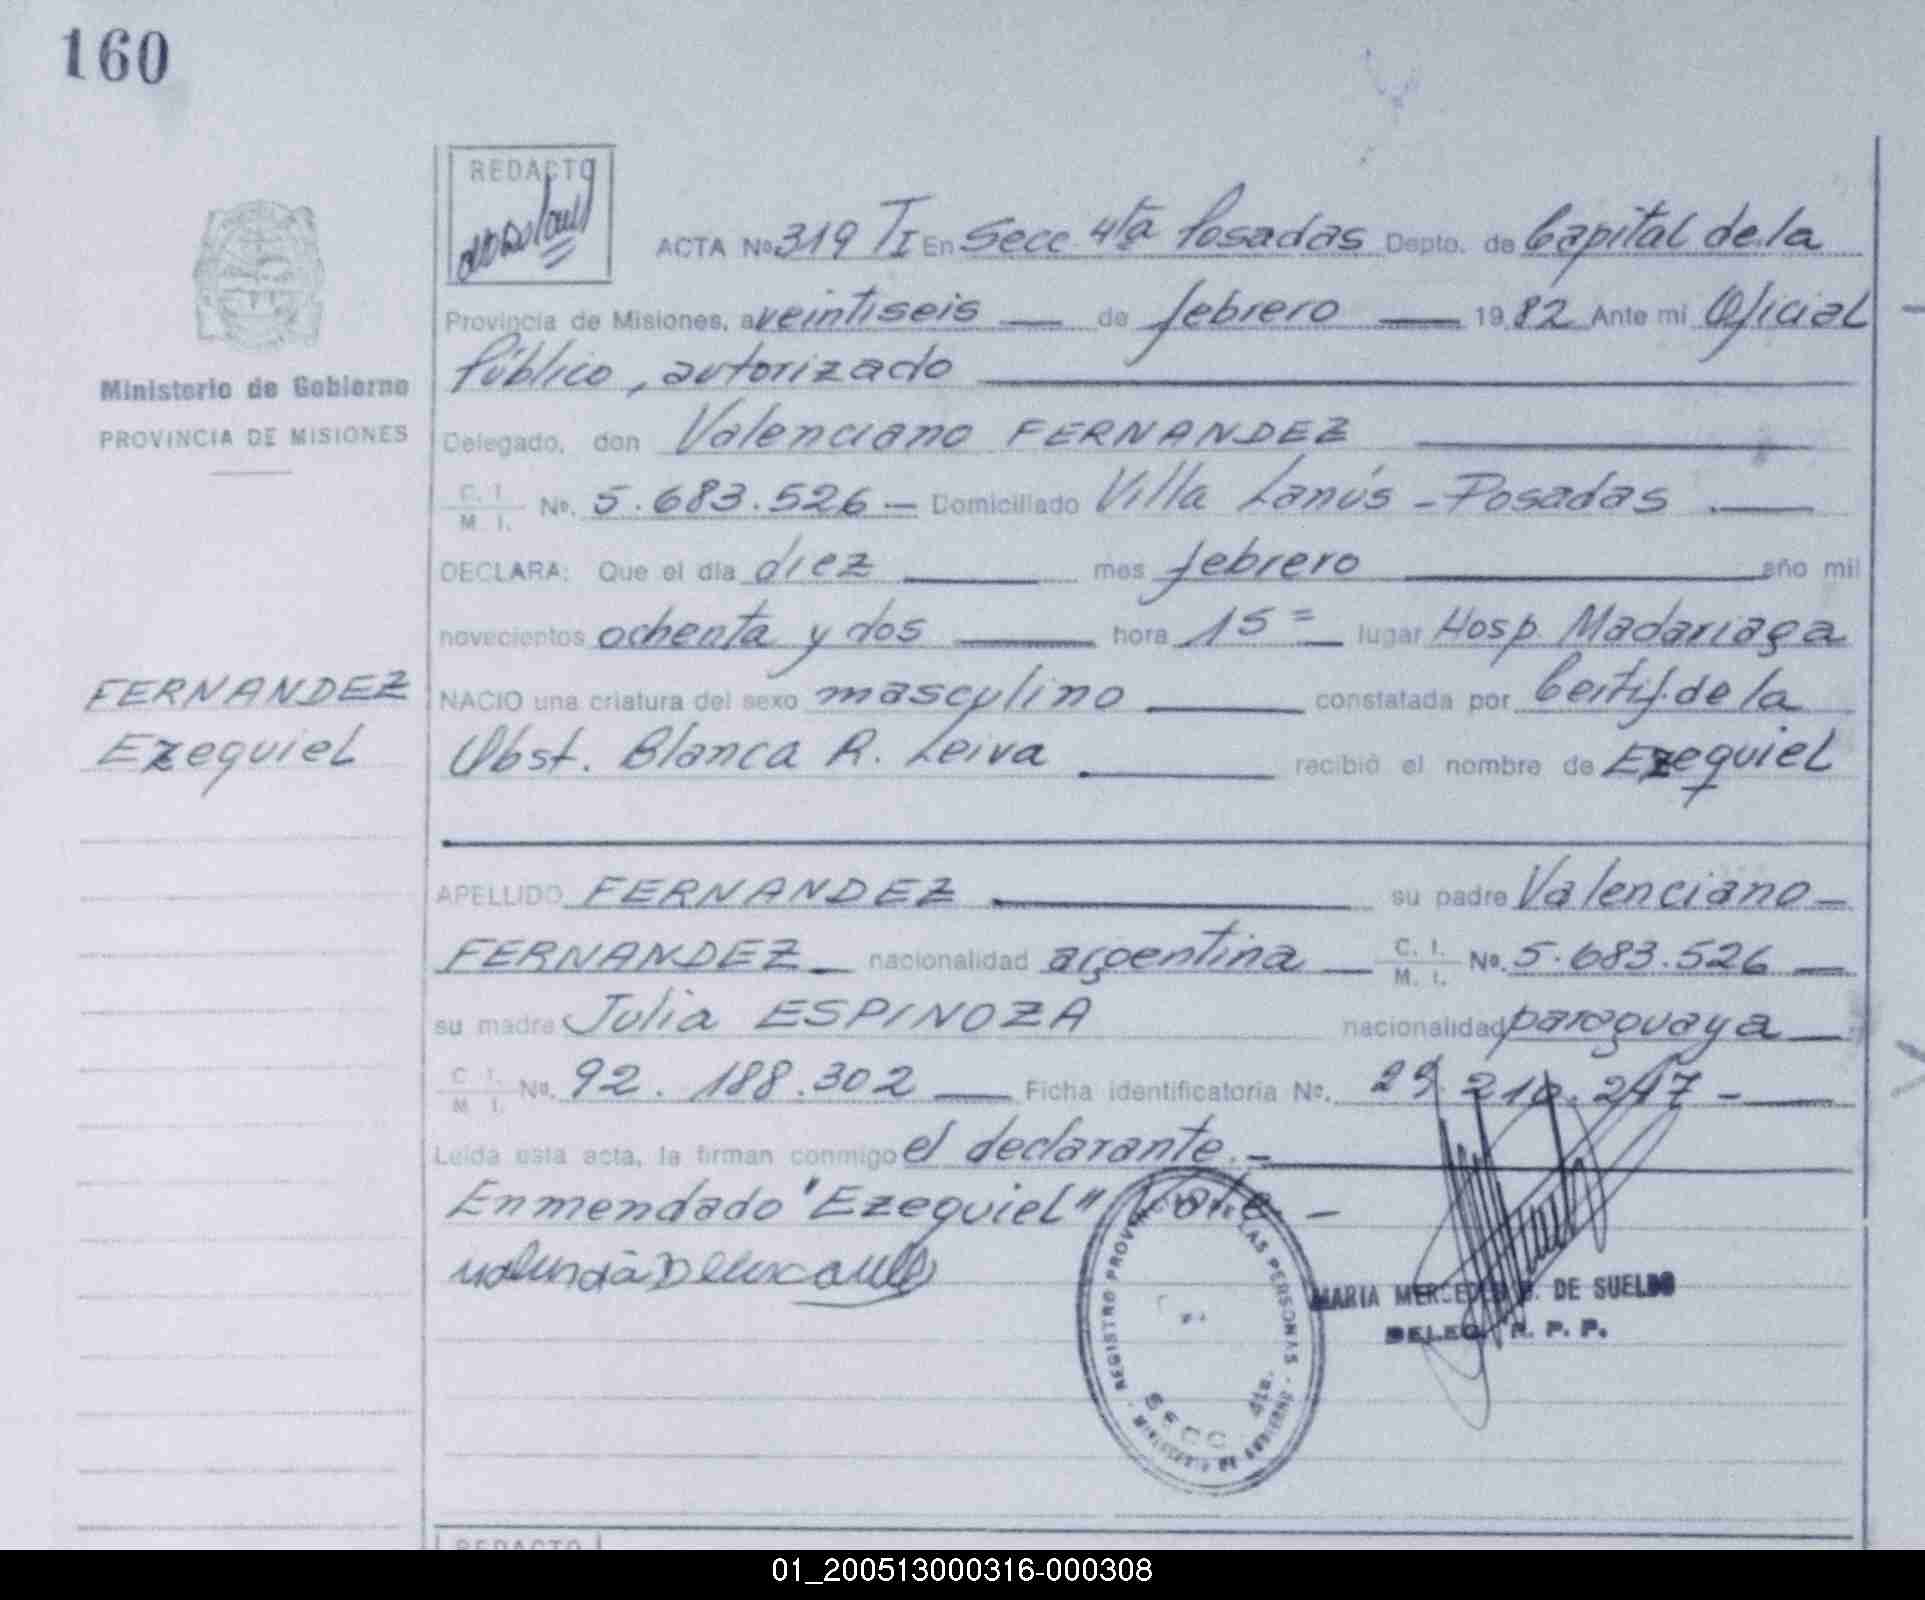 160
REDACTO
ACTA Nº 319 TI En Secc 4ta Posadas Depto. de Capital de la
Ministerio de Gobierno
PROVINCIA DE MISIONES
Provincia de Misiones, a veintiseis — de febrero — 1982 Ante mi Oficial
Público, autorizado
Delegado, don Valenciano FERNANDEZ
C. I. M. I. Nº. 5.683.526 — Domiciliado Villa Lanús - Posadas
DECLARA: Que el día diez mes febrero año mil
novecientos ochenta y dos hora 15= lugar Hosp. Madariaga
FERNANDEZ
Ezequiel
NACIO una criatura del sexo masculino constatada por Certif. de la
Obst. Blanca R. Leiva recibió el nombre de Ezequiel
APELLIDO FERNANDEZ su padre Valenciano —
FERNANDEZ — nacionalidad argentina — C. I. M. I. Nº. 5.683.526 —
su madre Julia ESPINOZA nacionalidad paraguaya —
C. I. M. I. Nº. 92.188.302 — Ficha identificatoria Nº. 29.210.247 -
Leída esta acta, la firman conmigo el declarante.-
Enmendado "Ezequiel" Vale. -
REGISTRO PROVINCIAL DE LAS PERSONAS
SECC 4ta.
MARIA MERCEDES DE SUELDO
DELEG. R. P. P.
REDACTO
01_200513000316-000308